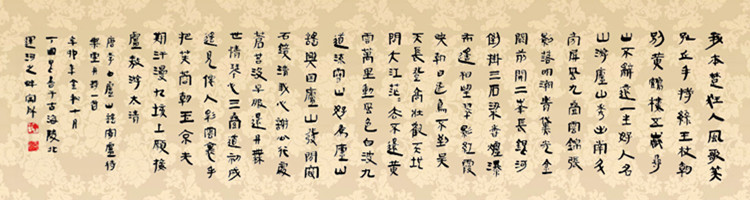 我本楚狂人風歌笑
孔丘手持綠玉杖朝
別黃鶴樓五嶽尋
山不辭遠一生好入名
山游廬山秀出南斗
傍屏風九疊雲錦張
影落明湖青黛光金
闕前開二峯長銀河
倒掛三石梁香爐瀑
布遙相望翠影紅霞
映朝日鳥飛不到吳
天長登高壯觀天地
間大江茫茫去不還黃
雲萬里動風色白波九
道流雪山好為廬山
謠興因廬山發閒窺
石鏡清我心謝公行處
蒼苔沒早服還丹無
世情琴心三疊道初成
遙見仙人彩雲裏手
把芙蓉朝玉京先
期汗漫九垓上願接
盧敖游太清
唐李白廬山謠寄盧侍
一首
辛卯年月
于古海陵北
運河之畔